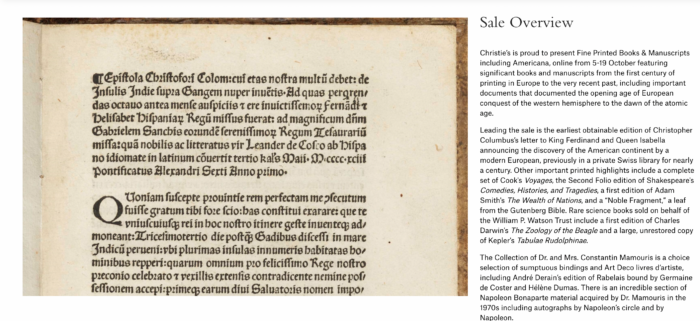 Sale Overview
¶Epistola Christofori Colom: cui etas nostra multũ debet: de
Insulis Indie supra Gangem nuper inuẽtis. Ad quas perqren/
das octauo antea mense auspiciis ⁊ ere inuictissimoꝝ Fernãdi ⁊
Helisabet Hispaniaꝝ Regũ missus fuerat: ad magnificum dñm
Gabrielem Sanchis eorundẽ serenissimoꝝ Regum Tesaurariũ
missa: quã nobilis ac litteratus vir Leander de Cosco ab Hispa
no idiomate in latinum cõuertit tertio kaƚs Maii. M.cccc.xciii
Pontificatus Alexandri Sexti Anno primo.
QUoniam suscepte prouintie rem perfectam me ɔsecutum
fuisse gratum tibi fore scio: has constitui exarare: que te
vniuscuiusqꝫ rei in hoc nostro itinere geste inuenteqꝫ ad/
moneant: Tricesimotertio die postqꝫ Gadibus discessi in mare
Indicũ perueni: vbi plurimas insulas innumeris habitatas ho/
minibus repperi: quarum omnium pro felicissimo Rege nostro
preconio celebrato ⁊ vexillis extensis contradicente nemine pos/
sessionem accepi: primeqꝫ earum diui Saluatoris nomen impo/
Christie's is proud to present Fine Printed Books & Manuscripts
including Americana, online from 5-19 October featuring
significant books and manuscripts from the first century of
printing in Europe to the very recent past, including important
documents that documented the opening age of European
conquest of the western hemisphere to the dawn of the atomic
age.
Leading the sale is the earliest obtainable edition of Christopher
Columbus's letter to King Ferdinand and Queen Isabella
announcing the discovery of the American continent by a
modern European, previously in a private Swiss library for nearly
a century. Other important printed highlights include a complete
set of Cook's Voyages, the Second Folio edition of Shakespeare's
Comedies, Histories, and Tragedies, a first edition of Adam
Smith's The Wealth of Nations, and a "Noble Fragment," a leaf
from the Gutenberg Bible. Rare science books sold on behalf of
the William P. Watson Trust include a first edition of Charles
Darwin's The Zoology of the Beagle and a large, unrestored copy
of Kepler's Tabulae Rudolphinae.
The Collection of Dr. and Mrs. Constantin Mamouris is a choice
selection of sumptuous bindings and Art Deco livres d'artiste,
including André Derain's edition of Rabelais bound by Germaine
de Coster and Hélène Dumas. There is an incredible section of
Napoleon Bonaparte material acquired by Dr. Mamouris in the
1970s including autographs by Napoleon's circle and by
Napoleon.